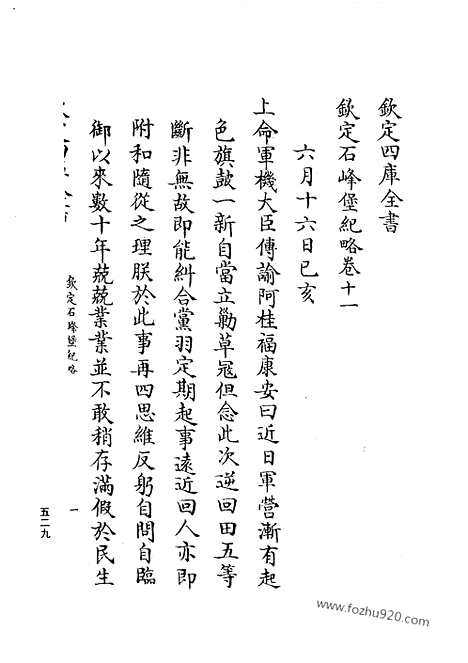 欽定四庫全書
欽定石峰堡紀略卷十一
六月十六日己亥
上命軍機大臣傳諭阿桂福康安曰近日軍營漸有起
色旗鼓一新自當立勦草冦但念此次逆回田五等
斷非無故即能糾合黨羽定期起事遠近回人亦即
附和隨從之理朕於此事再四思維反躬自問自臨
御以來數十年兢兢業業並不敢稍存滿假於民生
欽定石峰堡紀略
一
五二九
www.fozhu920.com